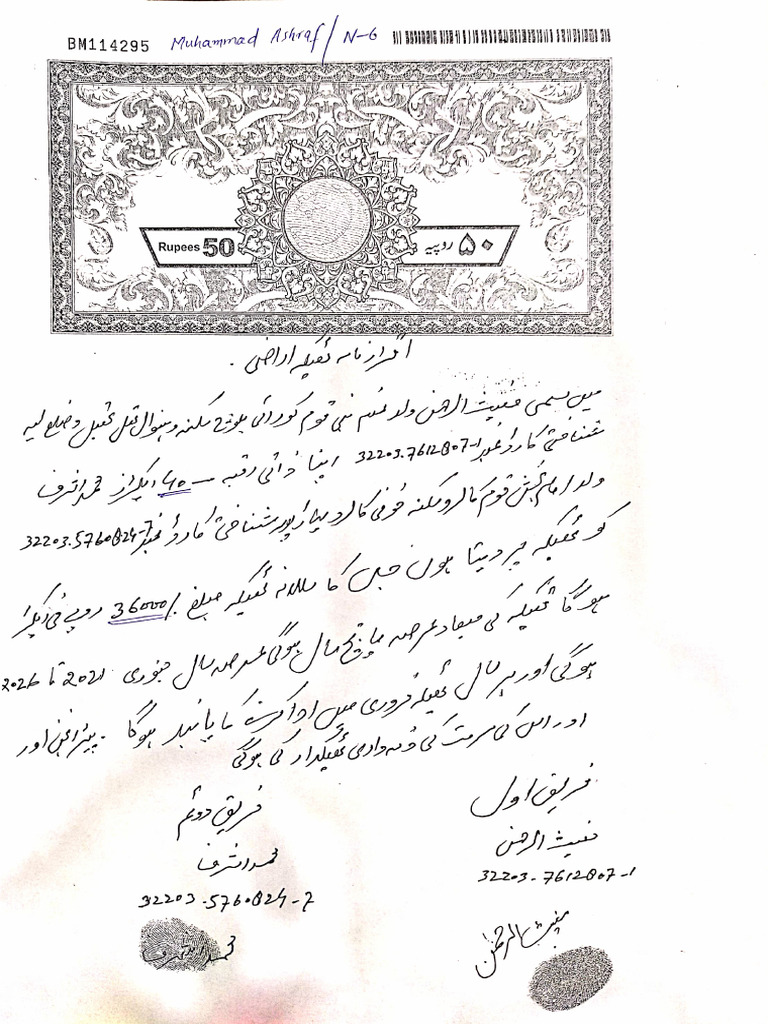 BM114295 Muhammad Ashraf / N-6
Rupees 50 ۵۰ روپیہ
اقرار نامہ ٹھیکہ اراضی
میں مسمی مغیث الرحمن ولد غلام نبی قوم کورائی بلوچ سکنہ تحصیل و ضلع لیہ
شناختی کارڈ نمبر 32203.7612807-1 اپنا ذاتی رقبہ 40 ایکڑ محمد اشرف
ولد امام بخش قوم کالرو سکنہ کالرو شناختی کارڈ نمبر 32203.5760824-7
کو ٹھیکہ پر دیتا ہوں جس کا سالانہ ٹھیکہ مبلغ 36000/ روپے فی ایکڑ
ہوگا ٹھیکہ کی میعاد عرصہ پانچ سال ہوگی عرصہ سال جنوری 2021 تا 2026
ہوگی اور ہر سال ٹھیکہ فروری میں ادا کرنے کا پابند ہوگا۔ پیٹر انجن اور
اور اس کی مرمت کی ذمہ داری ٹھیکیدار کی ہوگی
فریق اول
مغیث الرحمن
32203-7612807-1
مغیث الرحمن
فریق دوئم
محمد اشرف
32203.5760824-7
محمد اشرف